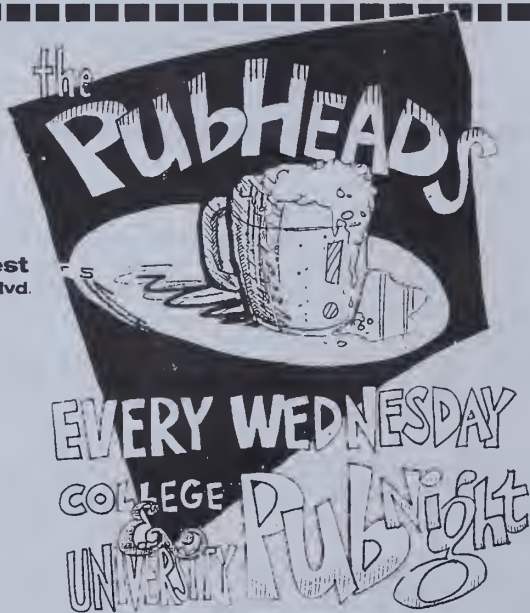 the
PUBHEADS
est
lvd.
rs
EVERY WEDNESDAY
COLLEGE
& UNIVERSITY
PUB Night